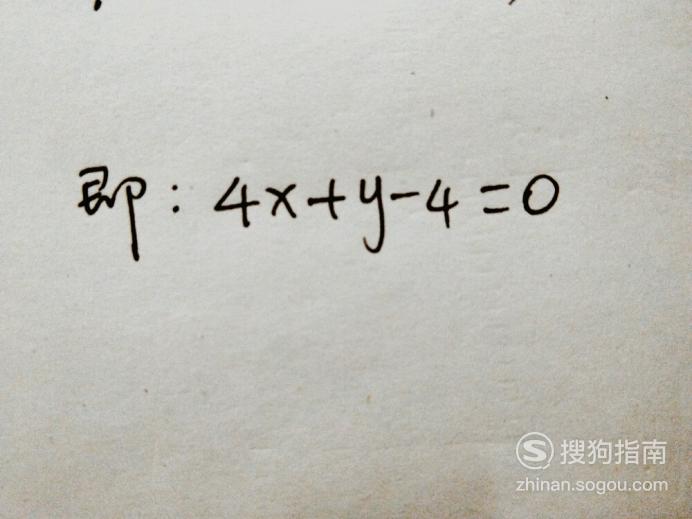 即: 4x+y-4=0
搜狗指南
zhinan.sogou.com